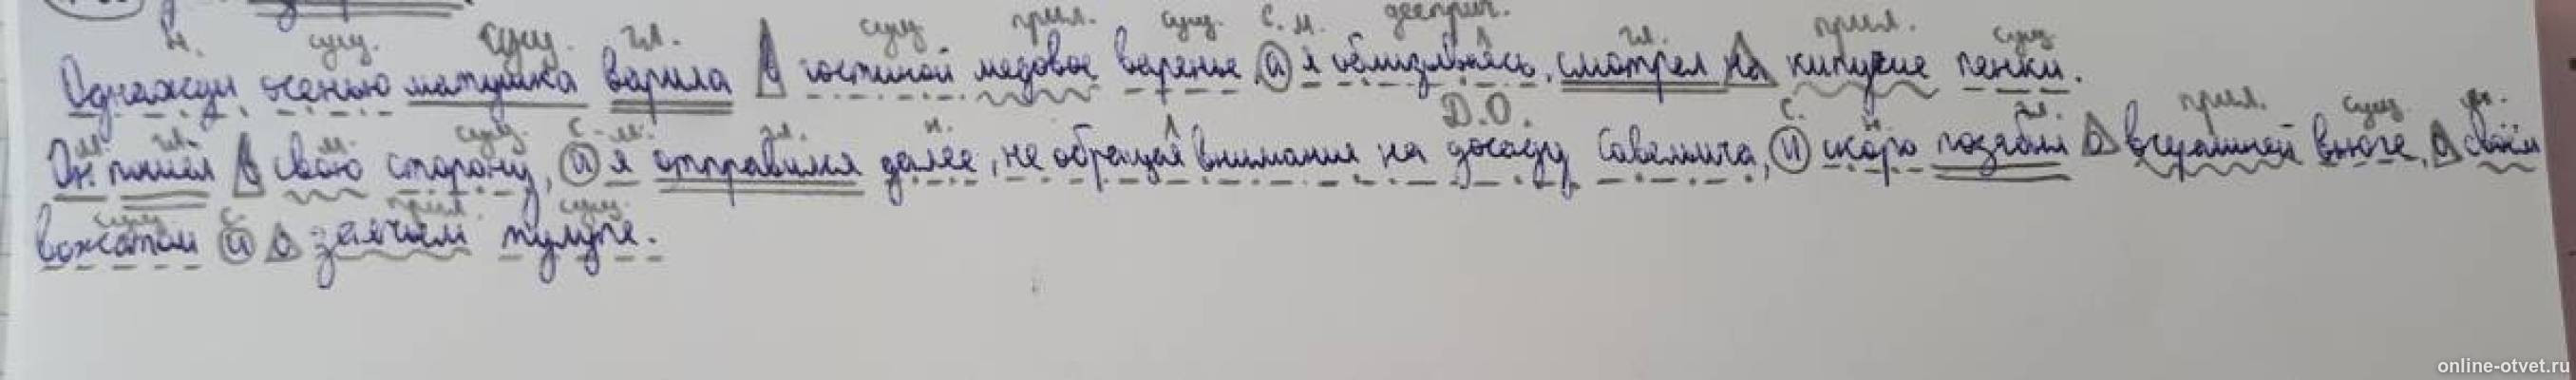 н. сущ. сущ. гл. сущ прил. сущ. с. м. дееприч. гл. прил. сущ
Однажды осенью матушка варила в гостиной медовое варенье а я облизываясь, смотрел на кипучие пенки.
м гл. м. сущ с. м. гл. н. Д.О. с. н гл. прил. сущ м.
Он пошёл в свою сторону, и я отправился далее, не обращая внимания на досаду Савельича, и скоро позабыл о вчерашней вьюге, о своём
сущ с. прил. сущ.
вожатом и о заячьем тулупе.
online-otvet.ru